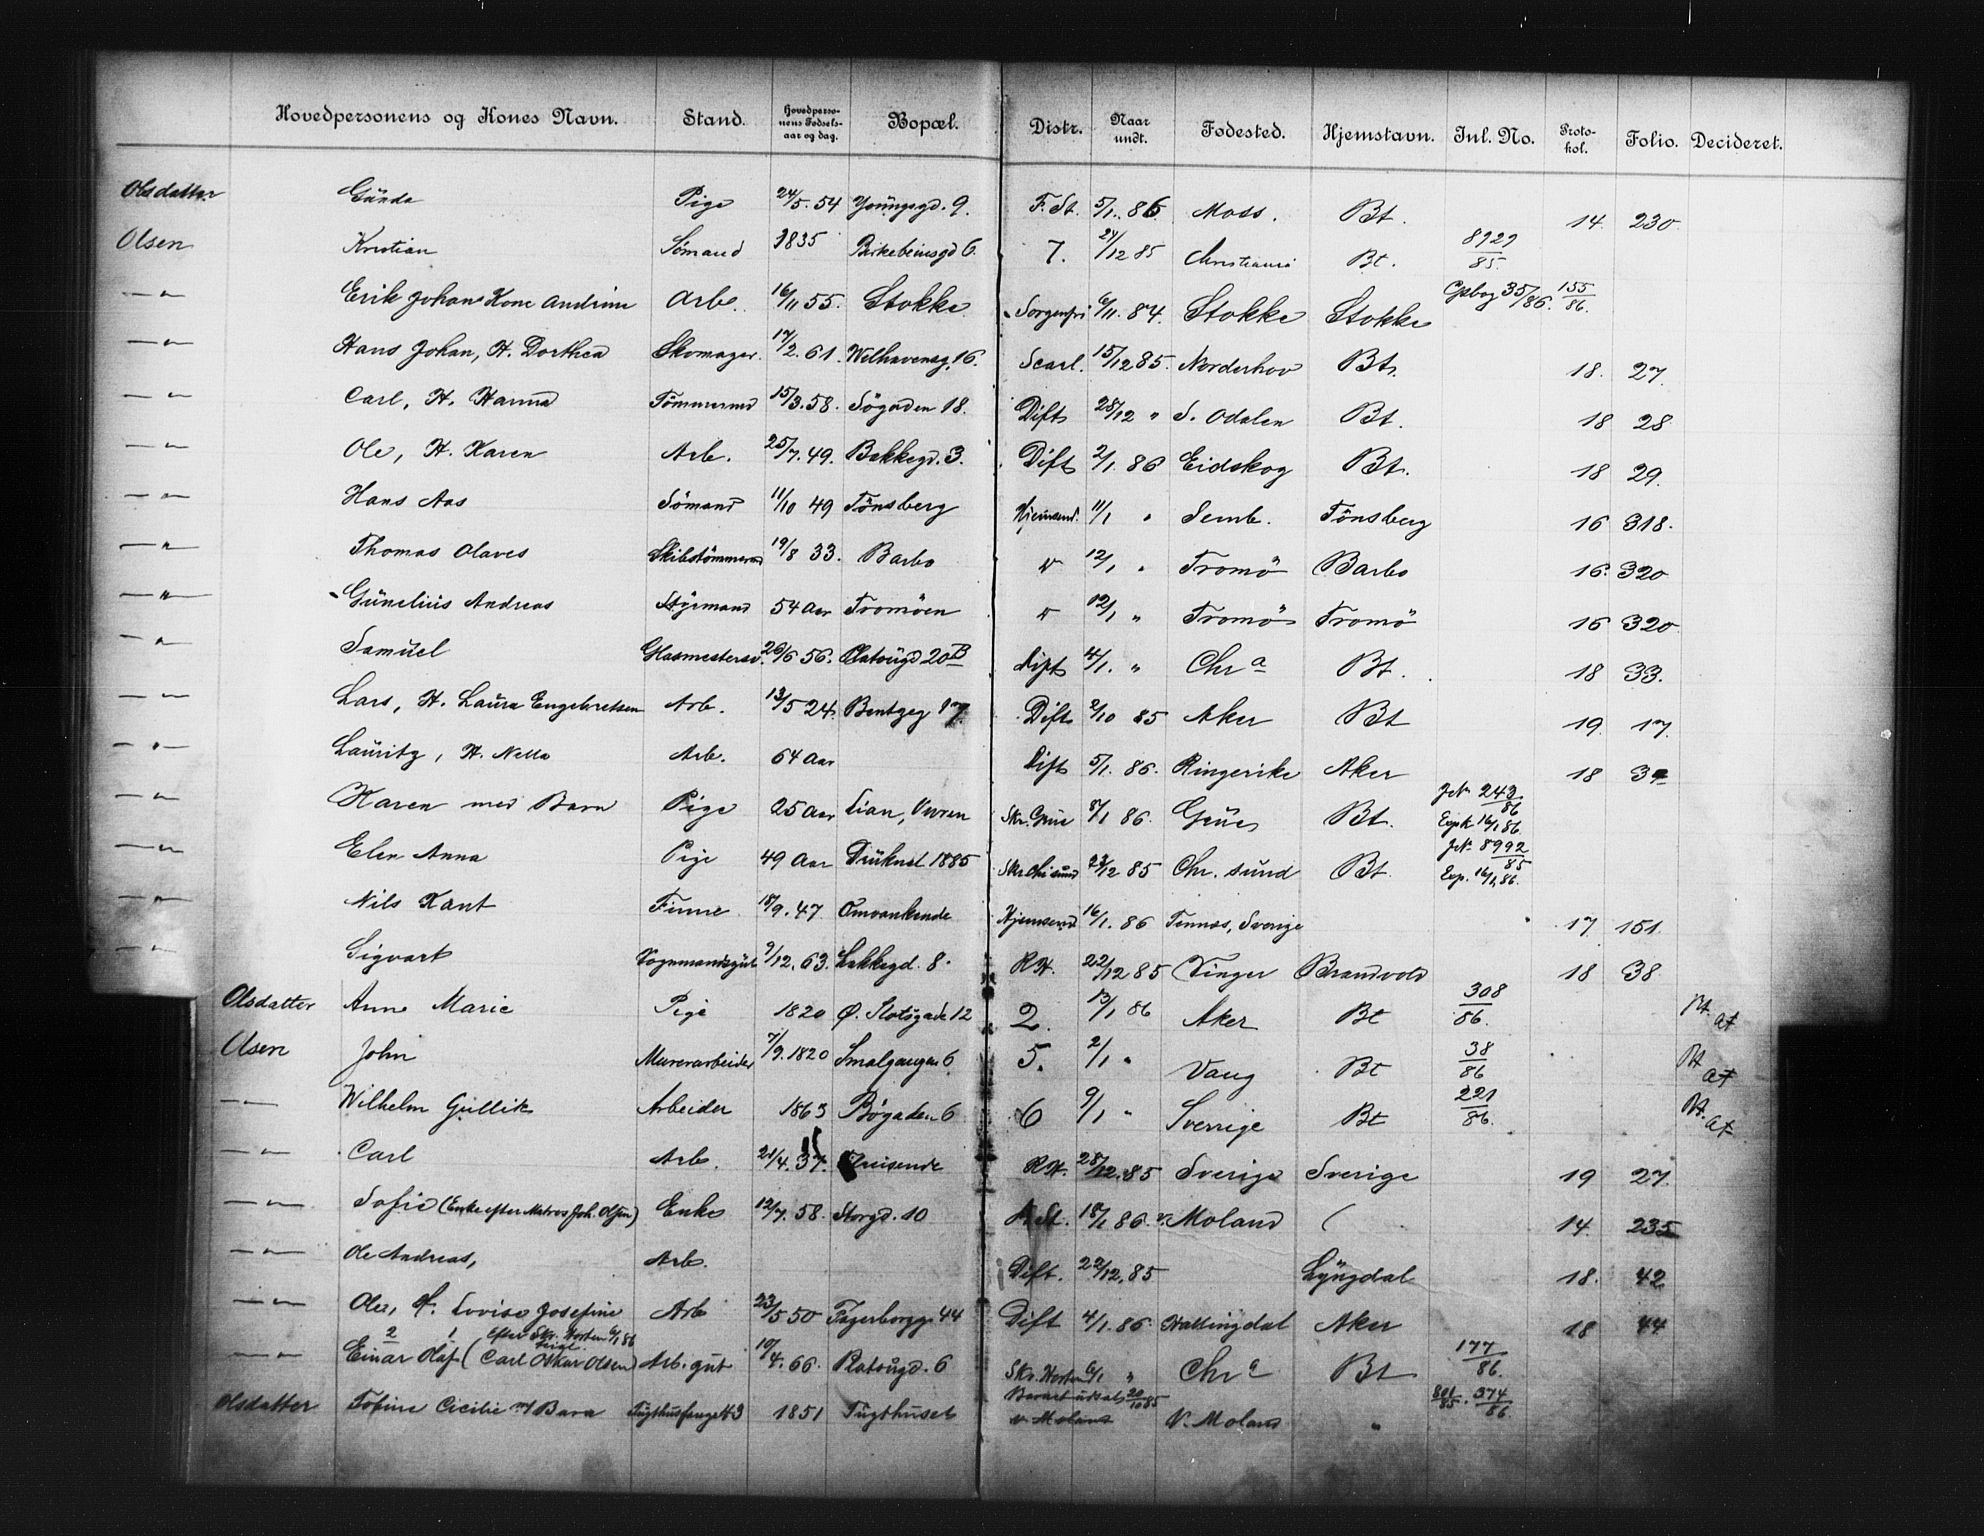 Hovedpersonens og Kones Navn. Stand. Hovedpersonens Fødselsaar og dag. Bopæl. Distr. Naar undt. Fødested. Hjemstavn. Jnl. No. Protokol. Folio. Decideret.
Olsdatter Gunda Pige 24/5. 54 Youngsgd. 9. F. St. 5/1. 86 Moss. Bt. 14. 230
Olsen Kristian Sömand 1835 Birkebeinsgd 6. 7. 21/12 85 Christiania Bt. 8929/85.
—"— Erik Johan Kone Andrine Arb. 16/11 55. Stokke Sorgenfri 6/11. 84. Stokke Stokke 35/86. 155/86.
—"— Hans Johan, H. Dorthea Skomager. 17/2. 61. Welhavensg. 16. Scarl. 15/12 85. Norderhov Bt. 18. 27.
—"— Carl, H. Hanna Tömmermd 15/3. 58. Sögaden 18. Dift 28/12 " S. Odalen Bt. 18 28
—"— Ole, H. Karen Arb. 25/7. 49. Bakkegd. 3. Dift 2/1. 86 Eidskog Bt. 18 29.
—"— Hans Aas Sömand 11/10 49 Tönsberg Hjemsend. 11/1 " Semb. Tönsberg 16 318.
—"— Thomas Olaves Skibstömmermd 19/8 33. Barbo " 12/1 " Tromö Barbo 16. 320
—"— Gunelius Andreas Styrmand 54 Aar Tromöen " 12/1 " Tromö Tromö 16 320
—"— Samuel Glasmestersv. 26/6 56. Platougd 20 B Dift 4/1. " Chr a Bt. 18 33.
—"— Lars, H. Laura Engebretsen Arb. 13/5 24. Bentzeg 17 Dift 2/10 85 Aker Bt 19. 17.
—"— Lauritz, H. Nella Arb. 64 Aar Dift 5/1. 86. Ringerike Aker 18
—"— Karen med Barn Pige 25 Aar Lian, Skr. Grue 8/1 86. Grue Bt. JN. 243/86 Expk 16/1 86.
—"— Elen Anna Pige 49 Aar 1885 Skr. Chr sund 23/12 85 Chr. sund Bt. JN. 8992/85 Exp. 16/1 86.
—"— Nils Kant Finne 18/9. 47 Omvankende Hjemsend 16/1. 86 Tennæs, Sverige 17. 151.
—"— Sigvart Vognmandsgut 9/12. 63. Lakkegd. 8. RH. 22/12 85 Vinger Brandvold 18 38
Olsdatter Anne Marie Pige 1820 Ø. Slotsgade 12 2. 13/1 86 Aker Bt 308/86. Bt. af
Olsen John Murerarbeider 7/9. 1820 Smalgangen 6 5. 2/1 " Vang Bt 38/86 Bt af
—"— Wilhelm Gullik Arbeider 1863 Bøgaden 6 6 9/1 " Sverrige Bt 221/86. Bt. af
—"— Carl Arb. 21/4. 37. RH. 28/12. 85 Sverige Sverige 19 27.
—"— Sofie (Enke efter Matros Joh. Olsen) Enke 12/7. 58. Storgd. 10 A. St. 18/1 86. v. Moland 14. 235
—"— Ole Andreas, Arb. Dift. 22/12. 85 Lyngdal 18. 42
—"— Ole, H. Lovise Josefine Arb 23/5 50 Fagerborgg. 44 Dift 4/1. 86. Hallingdal Aker 18 44
2 1 Efter Skr. Horten 6/1 86
—"— Einar Olaf (Carl Oskar Olsen) Arb. gut 19/4. 66. Platougd. 6 Skr. Horten 6/1 " Chr a Bt 177/86.
Olsdatter Tobine Cicilie m/ Barn Tugthusfange 43 1851 Tugthuset Besvart udsat 20/10 85 v. Moland V. Moland " 801/85. 374/86.